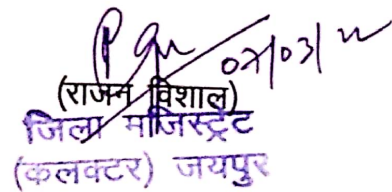 07/03/22
(राजन विशाल)
जिला मजिस्ट्रेट
(कलक्टर) जयपुर